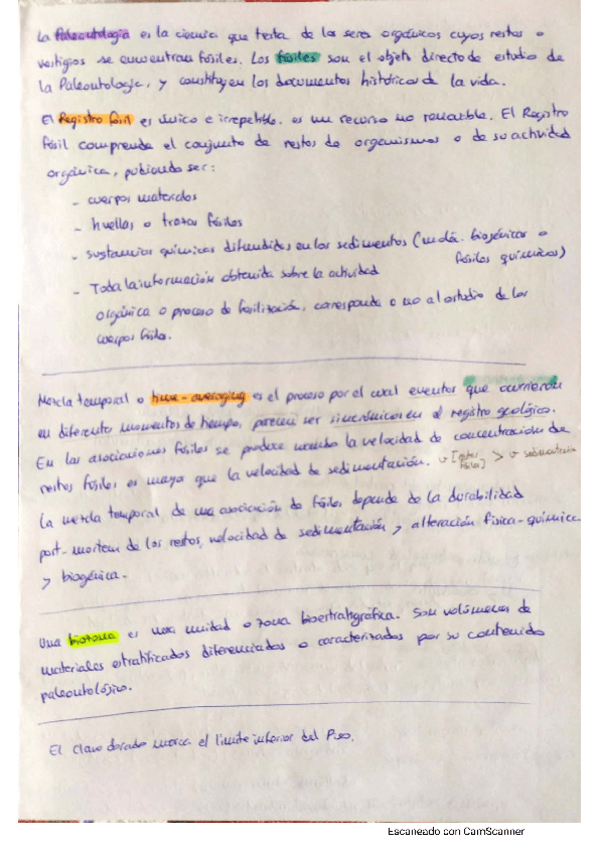 La Paleontología es la ciencia que trata de los seres orgánicos cuyos restos o
vestigios se encuentran fósiles. Los fósiles son el objeto directo de estudio de
la Paleontología, y constituyen los documentos históricos de la vida.
El Registro fósil es único e irrepetible. es un recurso no renovable. El Registro
fósil comprende el conjunto de restos de organismos o de su actividad
orgánica, pudiendo ser:
- cuerpos materiales
- huellas o trazas fósiles
- sustancias químicas difundidas en los sedimentos (moléc. biogénicas o
fósiles químicos)
- Toda la información obtenida sobre la actividad
orgánica o proceso de fosilización, corresponda o no al estudio de los
cuerpos fósiles.
Mezcla temporal o time-averaging es el proceso por el cual eventos que ocurrieron
en diferentes momentos de tiempo, parecen ser sincrónicos en el registro geológico.
En las asociaciones fósiles se produce cuando la velocidad de concentración de
restos fósiles es mayor que la velocidad de sedimentación. v [restos fósiles] > v sedimentación
La mezcla temporal de una asociación de fósiles depende de la durabilidad
post-mortem de los restos, velocidad de sedimentación y alteración física-química
y biogénica.
Una biozona es una unidad o zona bioestratigráfica. Son volúmenes de
materiales estratificados diferenciados o caracterizados por su contenido
paleontológico.
El clavo dorado marca el límite inferior del Piso.
Escaneado con CamScanner